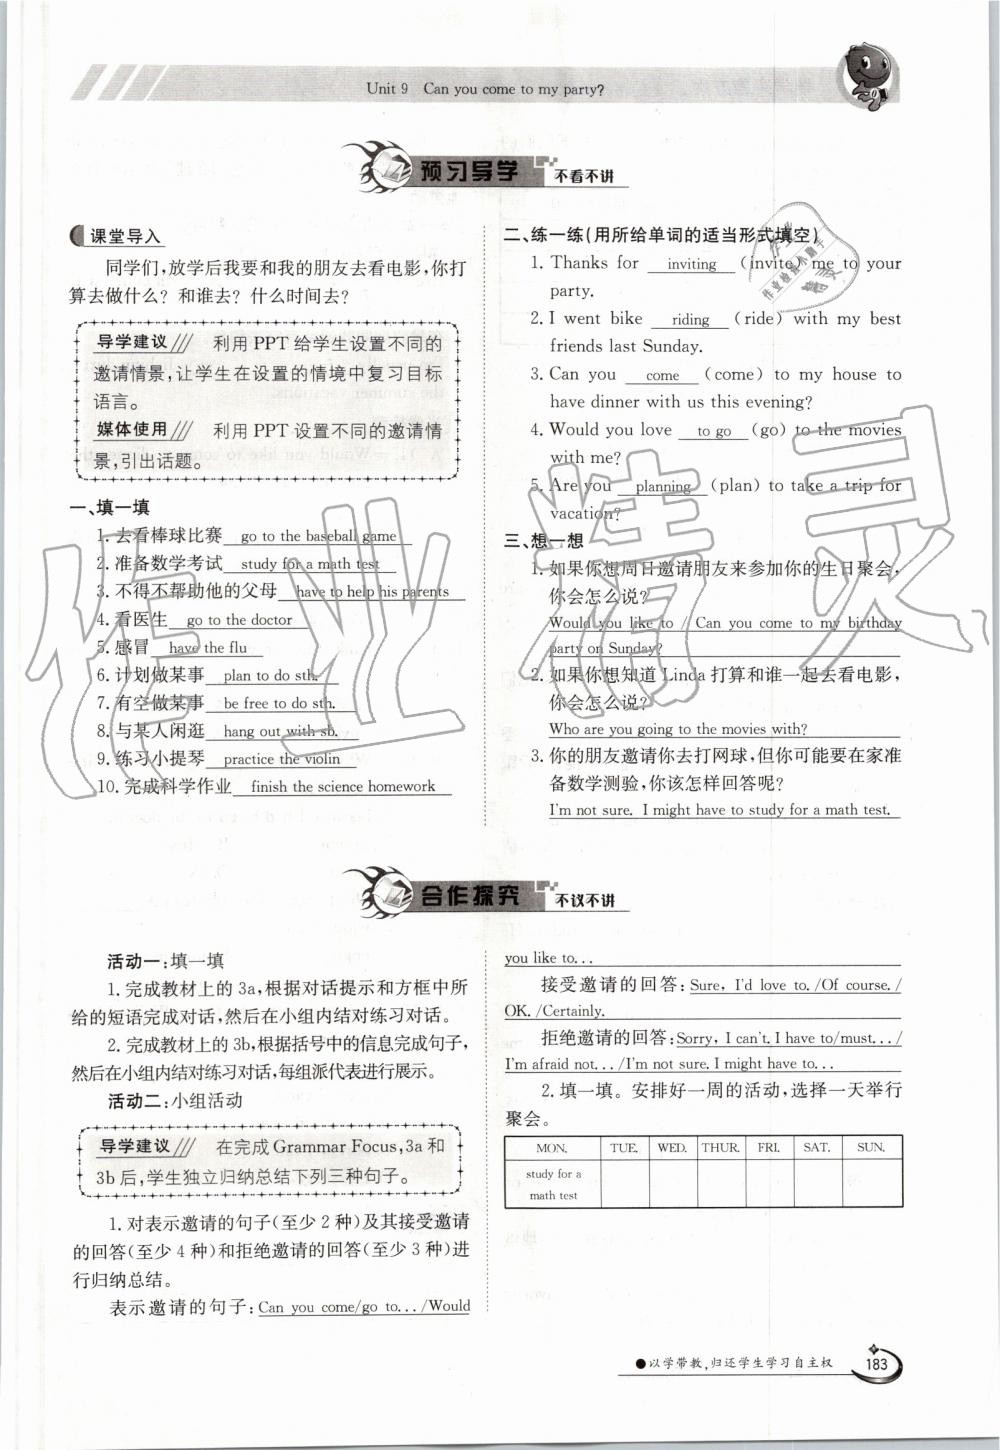 Unit 9 Can you come to my party?
预习导学 不看不讲
课堂导入
同学们,放学后我要和我的朋友去看电影,你打
算去做什么? 和谁去? 什么时间去?
导学建议 利用 PPT 给学生设置不同的
邀请情景,让学生在设置的情境中复习目标
语言。
媒体使用 利用 PPT 设置不同的邀请情
景,引出话题。
一、填一填
1. 去看棒球比赛 go to the baseball game
2. 准备数学考试 study for a math test
3. 不得不帮助他的父母 have to help his parents
4. 看医生 go to the doctor
5. 感冒 have the flu
6. 计划做某事 plan to do sth.
7. 有空做某事 be free to do sth.
8. 与某人闲逛 hang out with sb.
9. 练习小提琴 practice the violin
10. 完成科学作业 finish the science homework
二、练一练(用所给单词的适当形式填空)
1. Thanks for inviting (invite) me to your
party.
2. I went bike riding (ride) with my best
friends last Sunday.
3. Can you come (come) to my house to
have dinner with us this evening?
4. Would you love to go (go) to the movies
with me?
5. Are you planning (plan) to take a trip for
vacation?
三、想一想
1. 如果你想周日邀请朋友来参加你的生日聚会,
你会怎么说?
Would you like to / Can you come to my birthday
party on Sunday?
2. 如果你想知道 Linda 打算和谁一起去看电影,
你会怎么说?
Who are you going to the movies with?
3. 你的朋友邀请你去打网球,但你可能要在家准
备数学测验,你该怎样回答呢?
I'm not sure. I might have to study for a math test.
合作探究 不议不讲
活动一:填一填
1. 完成教材上的 3a,根据对话提示和方框中所
给的短语完成对话,然后在小组内结对练习对话。
2. 完成教材上的 3b,根据括号中的信息完成句子,
然后在小组内结对练习对话,每组派代表进行展示。
活动二:小组活动
导学建议 在完成 Grammar Focus,3a 和
3b 后,学生独立归纳总结下列三种句子。
1. 对表示邀请的句子(至少 2 种)及其接受邀请
的回答(至少 4 种)和拒绝邀请的回答(至少 3 种)进
行归纳总结。
表示邀请的句子: Can you come/go to... /Would
you like to...
接受邀请的回答: Sure, I'd love to. /Of course. /
OK. /Certainly.
拒绝邀请的回答: Sorry, I can't. I have to/must... /
I'm afraid not... /I'm not sure. I might have to...
2. 填一填。安排好一周的活动,选择一天举行
聚会。
MON. TUE. WED. THUR. FRI. SAT. SUN.
study for a
math test
以学带教,归还学生学习自主权 183
作业精灵